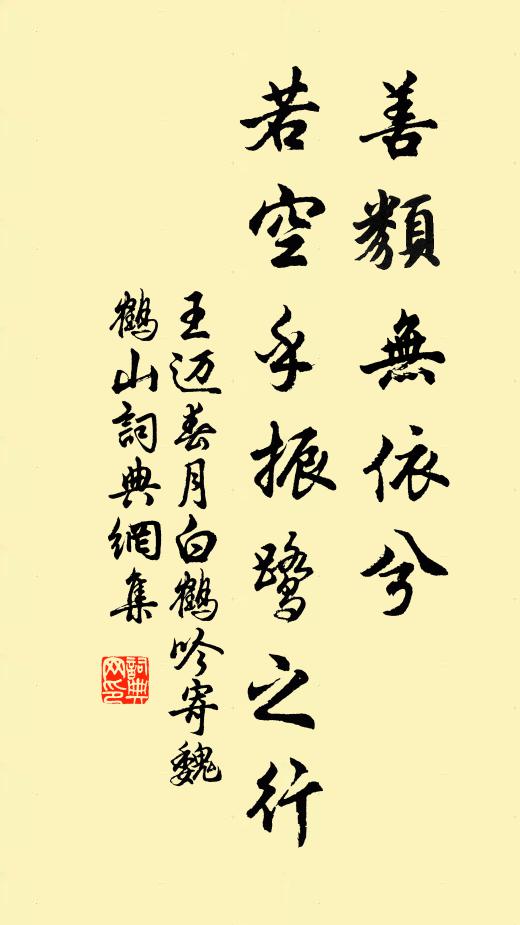 善類無依兮
若空乎振鹭之行
王迈春月白鶴吟寄魏
鶴山詞典網集
詞典
网印